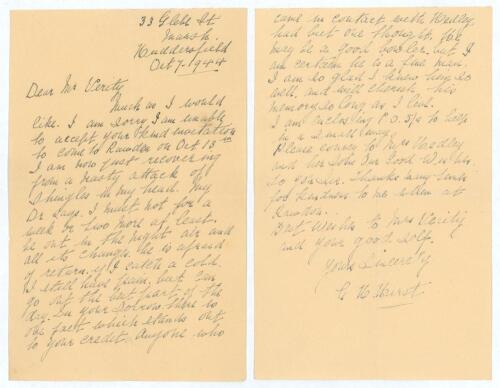 33 Glebe St
Marsh.
Huddersfield
Oct 7. 1944
Dear Mr Verity
Much as I would
like. I am sorry I am unable
to accept your kind invitation
to come to Rawdon on Oct 13th
I am now just recovering
from a nasty attack of
Shingles in my head. My
Dr Says. I must not for a
week or two more at least.
be out in the night air and
all its changes. he is afraid
of return, if I catch a cold.
I still have pain, but Can
go out the best part of the
day. In your Sorrow there is
one fact which stands out
to your credit. Anyone who
came in contact with Hedley,
had but one thought. He
may be a good bowler. but I
am certain he is a fine man.
I am so glad I knew him so
well and will cherish his
memory so long as I live.
I am enclosing P.O. 5/- to help
in a small way.
Please convey to Mrs Hedley
and her Sons our Good Wishes
to
Thanks
for kindness to me when at
Rawdon.
Best Wishes to Mrs Verity
and your good self.
Yours Sincerely
G H Hirst